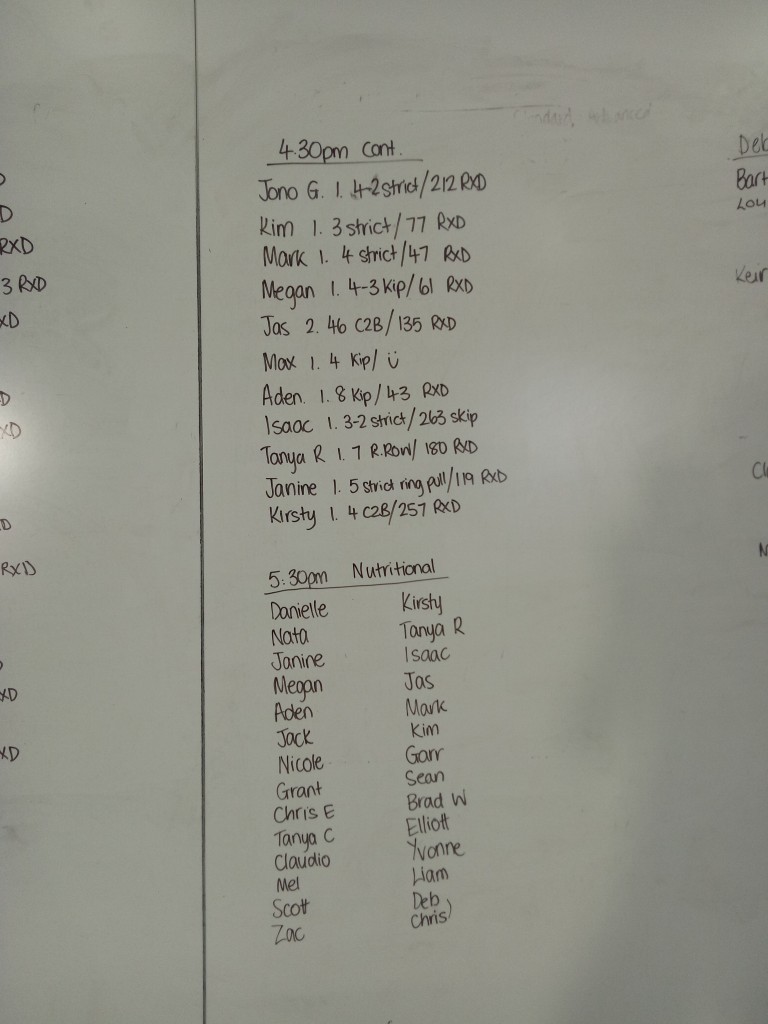 D
D
RXD
3 RXD
XD
D
XD
D
RXD
XD
XD
4.30pm Cont.
Jono G. 1. 4-2 strict/212 RXD
Kim 1. 3 strict/77 RXD
Mark 1. 4 strict/47 RXD
Megan 1. 4-3 Kip/61 RXD
Jas 2. 46 C2B/135 RXD
Max 1. 4 Kip/ Ü
Aden. 1. 8 Kip/43 RXD
Isaac 1. 3-2 strict/263 skip
Tanya R 1. 7 R.Row/ 180 RXD
Janine 1. 5 strict ring pull/119 RXD
Kirsty 1. 4 C2B/257 RXD
5:30pm Nutritional
Danielle Kirsty
Nata Tanya R
Janine Isaac
Megan Jas
Aden Mark
Jack Kim
Nicole Garr
Grant Sean
Chris E Brad W
Tanya C Elliott
Claudio Yvonne
Mel Liam
Scott Deb
Zac Chris)
Deb
Bart
Lou
Keir
Cl
N